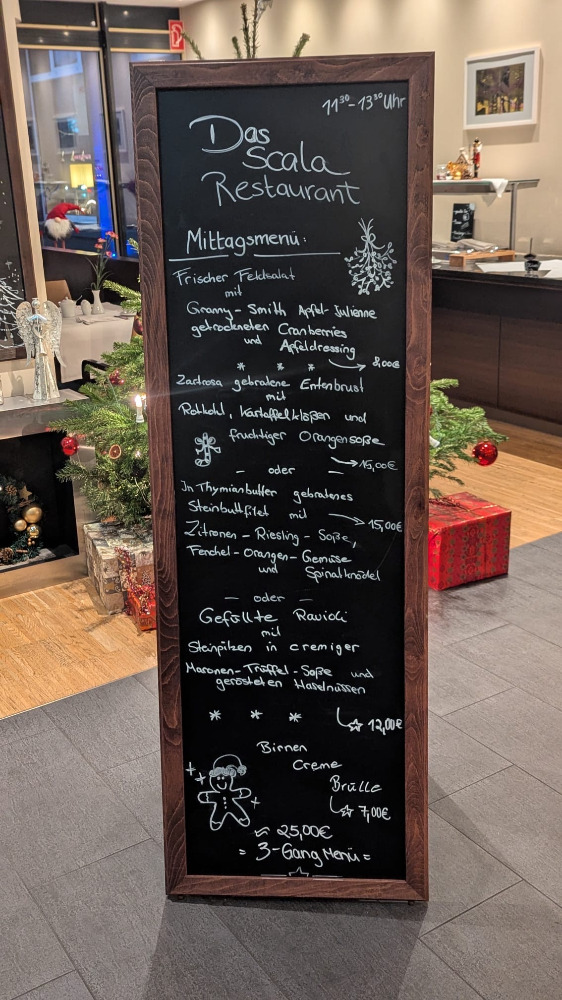 11³⁰-13³⁰ Uhr
Das
Scala
Restaurant
Mittagsmenü:
Frischer Feldsalat
mit
Granny-Smith Apfel-Julienne
getrockneten Cranberries
und Apfeldressing
* * * → 8,00€
Zartrosa gebratene Entenbrust
mit
Rotkohl, Kartoffelklößen und
fruchtiger Orangensoße
→ 15,00€
- oder -
In Thymianbutter gebratenes
Steinbuttfilet mit → 15,00€
Zitronen-Riesling-Soße,
Fenchel-Orangen-Gemüse
und Spinatknödel
- oder -
Gefüllte Ravioli
mit
Steinpilzen in cremiger
Maronen-Trüffel-Soße und
gerösteten Haselnüssen
* * * 12,00€
Birnen
Creme
Brülle
7,00€
25,00€
= 3-Gang Menü =